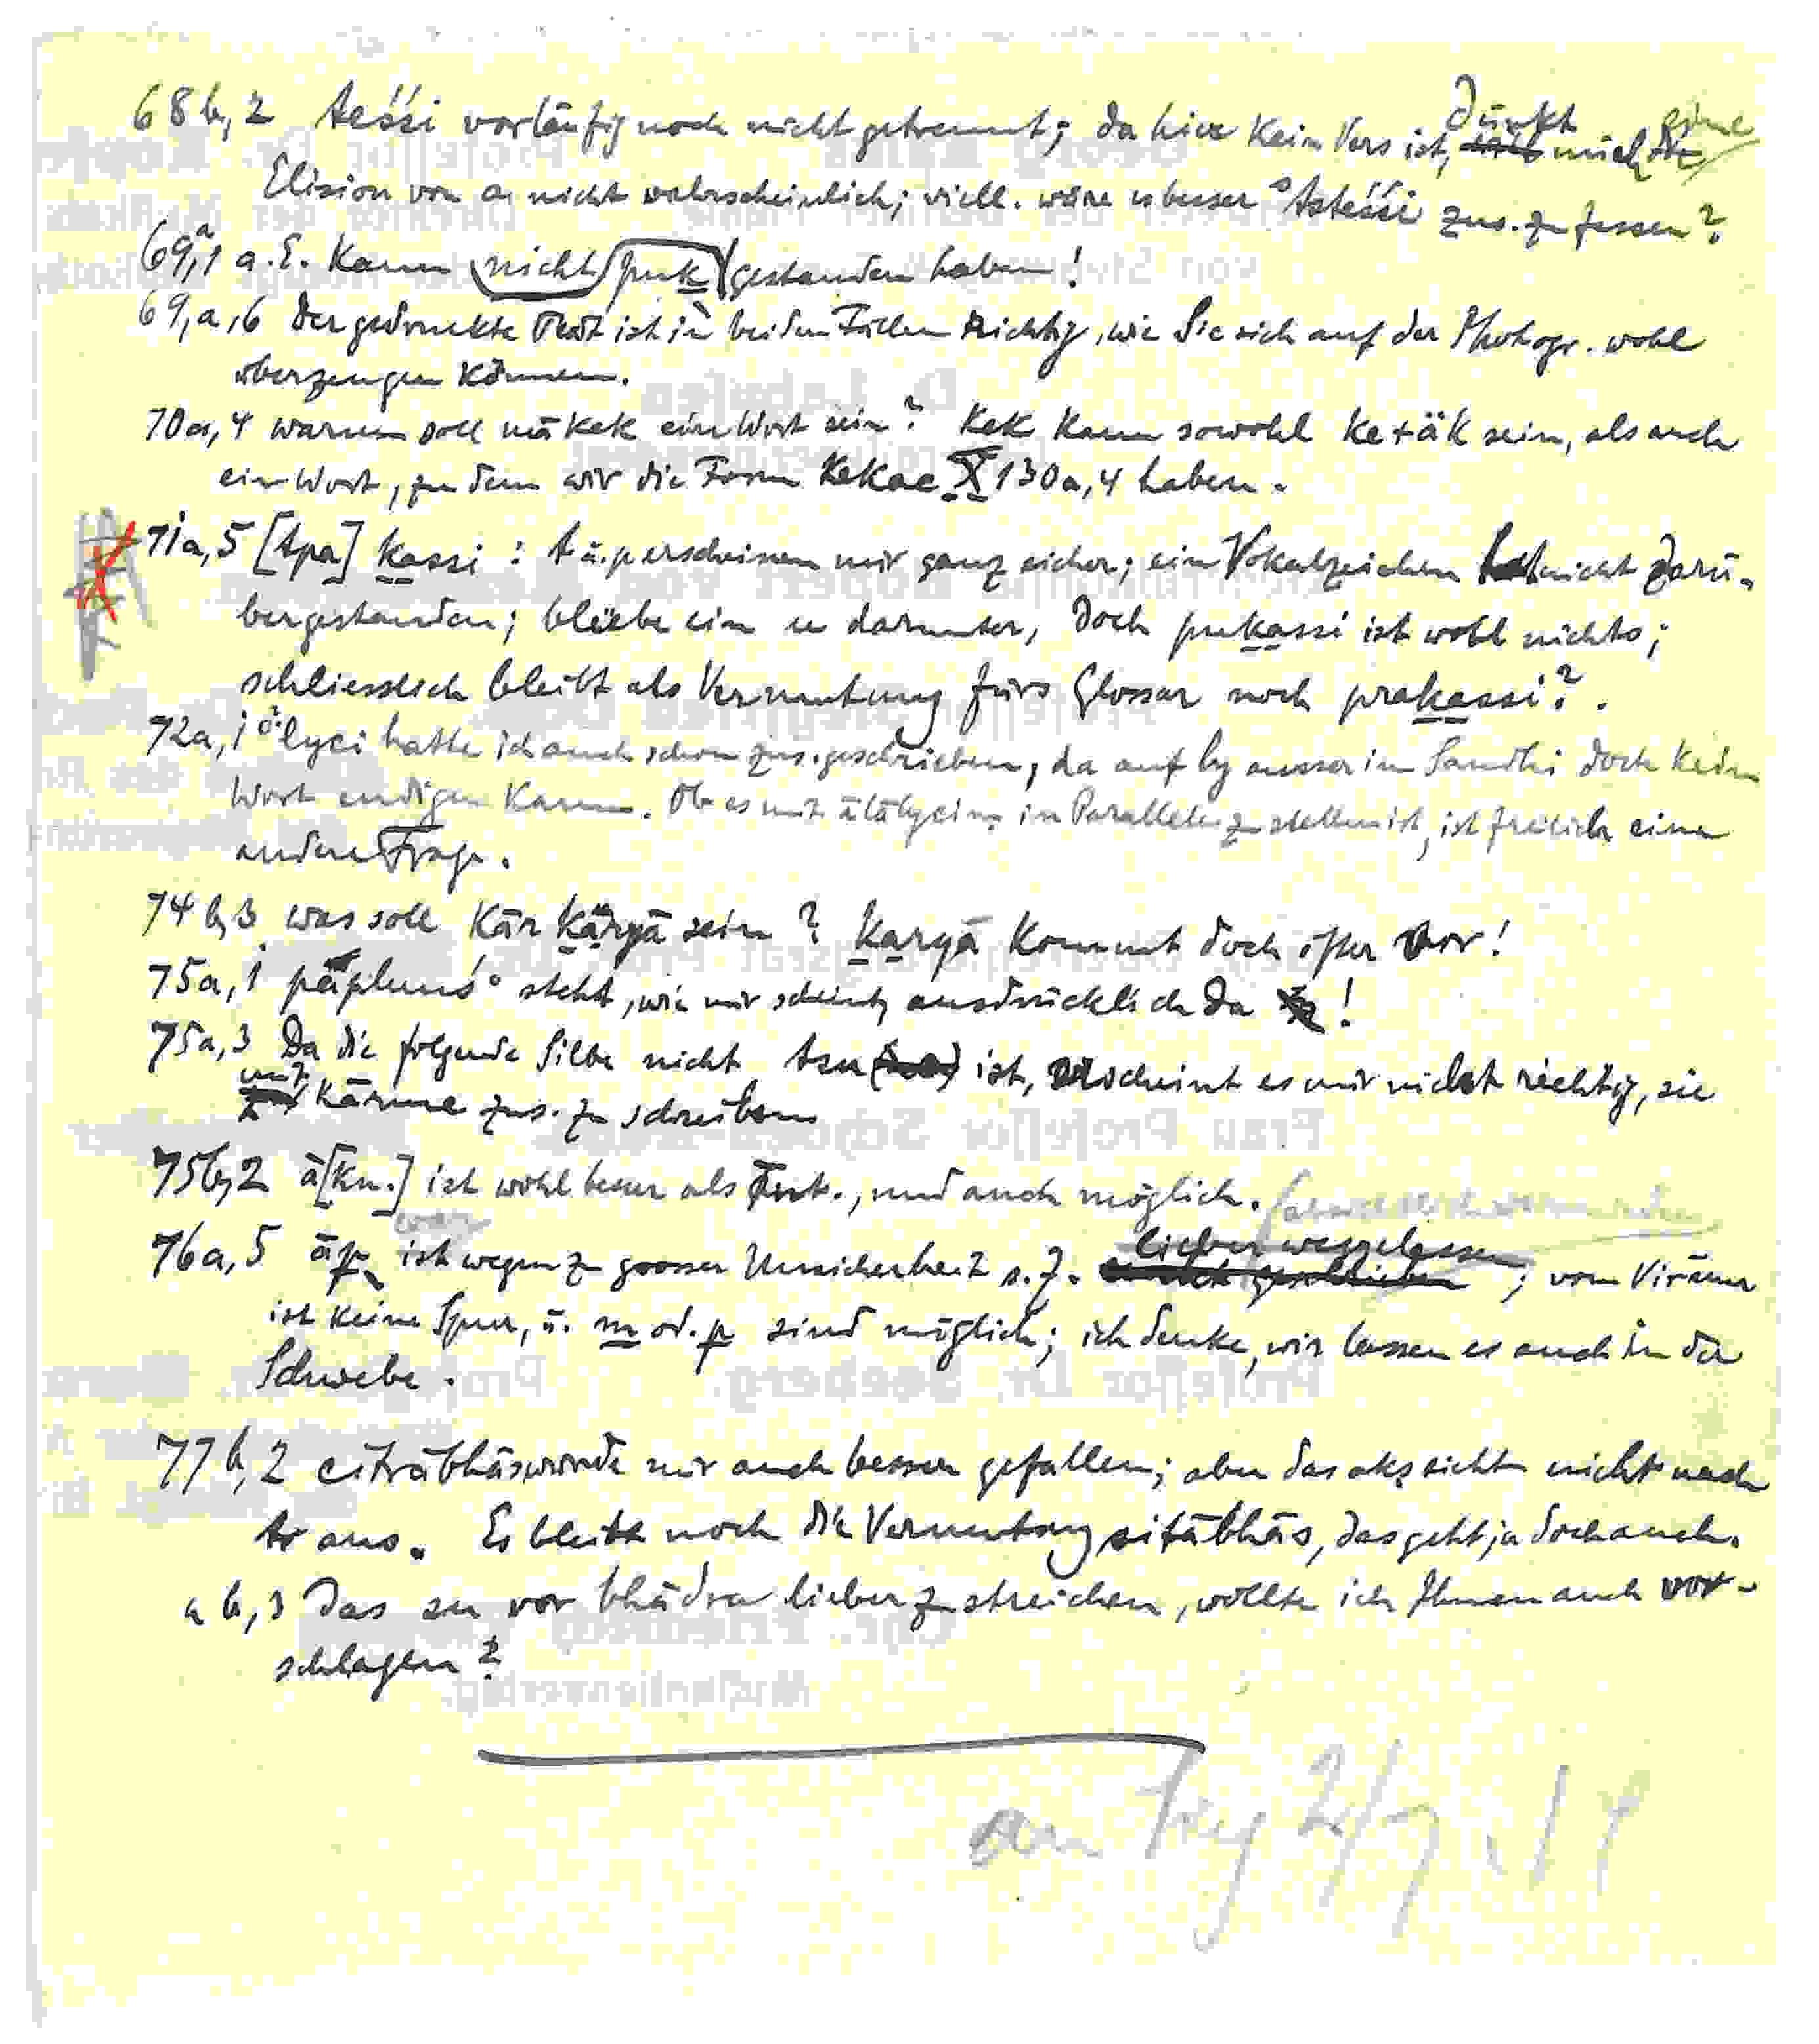 68b,2 teśśi vorläufig noch nicht getrennt; da hier kein Vers ist, dünkt mich eine
Elision von a nicht wahrscheinlich; viell. wäre es besser °tsteśśi zus. zu fassen?
69,a,1 a. E. kann nicht puk gestanden haben!
69,a,6 Der gedruckte Text ist in beiden Fällen richtig, wie Sie sich auf der Photogr. wohl
überzeugen können.
70a,4 warum soll mā kek ein Wort sein? kek kann sowohl ke+äk sein, als auch
ein Wort, zu dem wir die Form kekac X 130a,4 haben.
71a,5 [tpa] kassi: t u. p erscheinen mir ganz sicher; ein Vokalzeichen hat nicht darü-
bergestanden; bliebe ein u darunter, doch pukassi ist wohl nichts;
schliesslich bleibt als Vermutung fürs Glossar noch prakassi?.
72a,1 °lyci hatte ich auch schon zus. geschrieben, da auf ly ausser im Sandhi doch kein
Wort endigen kann. Ob es mit ālālycin in Parallele zu stellen ist, ist freilich eine
andere Frage.
74b,3 was soll kär käryā sein? karyā kommt doch öfter vor!
75a,1 päplu steht, wie mir scheint, ausdrücklich da!
75a,3 Da die folgende Silbe nicht tsu ist, erscheint es mir nicht richtig, sie
mit kärme zus. zu schreiben
75b,2 ā[kn.] ist wohl besser als , und auch möglich.
76a,5 āp war ist wegen zu grosser Unsicherheit s. Z. lieber weggelassen; vom Virāma
ist keine Spur, u. m od. p sind möglich; ich denke, wir lassen es auch in der
Schwebe.
77b,2 citrābhās würde mir auch besser gefallen; aber das akṣ sieht nicht nach
tr aus. Es bleibt noch die Vermutung sitābhās, das geht ja doch auch.
b,3 Das su vor bhādra lieber zu streichen, wollte ich Ihnen auch vor-
schlagen?
an 2/7.14